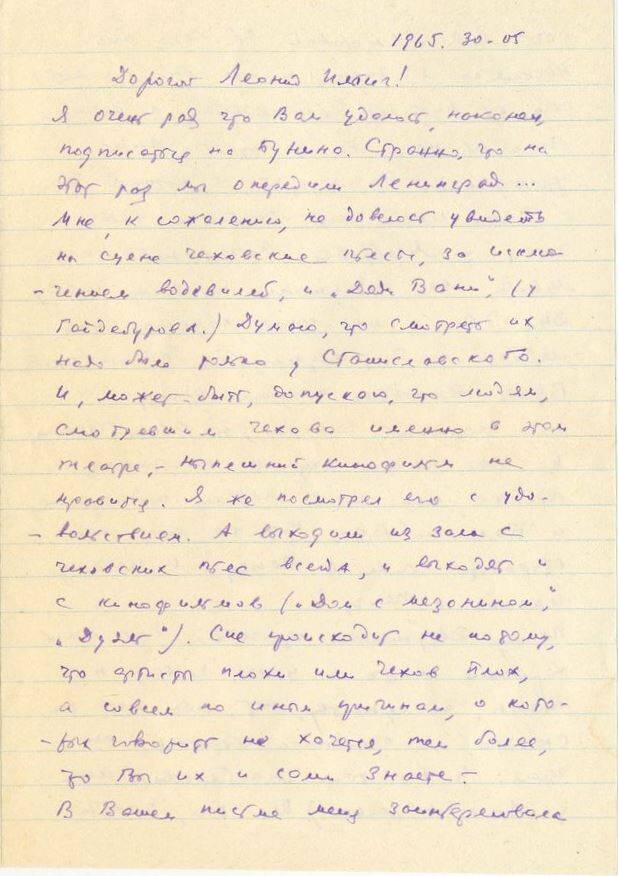 1965. 30-05
Дорогой Леонид Ильич!
Я очень рад что Вам удалось, наконец,
подписаться на Бунина. Странно, что на
этот раз мы опередили Ленинград...
Мне, к сожалению, не довелось увидеть
на сцене чеховские пьесы, за исклю-
-чением водевилей, и „Дяди Вани", (у
Гайдебурова.) Думаю, что смотреть их
надо было только у Станиславского.
И, может-быть, допускаю, что людям,
смотревшим Чехова именно в этом
театре,- нынешний кинофильм не
нравится. Я же посмотрел его с удо-
-вольствием. А выходили из зала с
чеховских пьес всегда, и выходят и
с кинофильмов („Дом с мезонином",
„Дуэль"). Сие происходит не потому,
что артисты плохи или Чехов плох,
а совсем по иным причинам, о кото-
-рых говорить не хочется, тем более,
что Вы их и сами знаете-
В Вашем письме меня заинтересовала